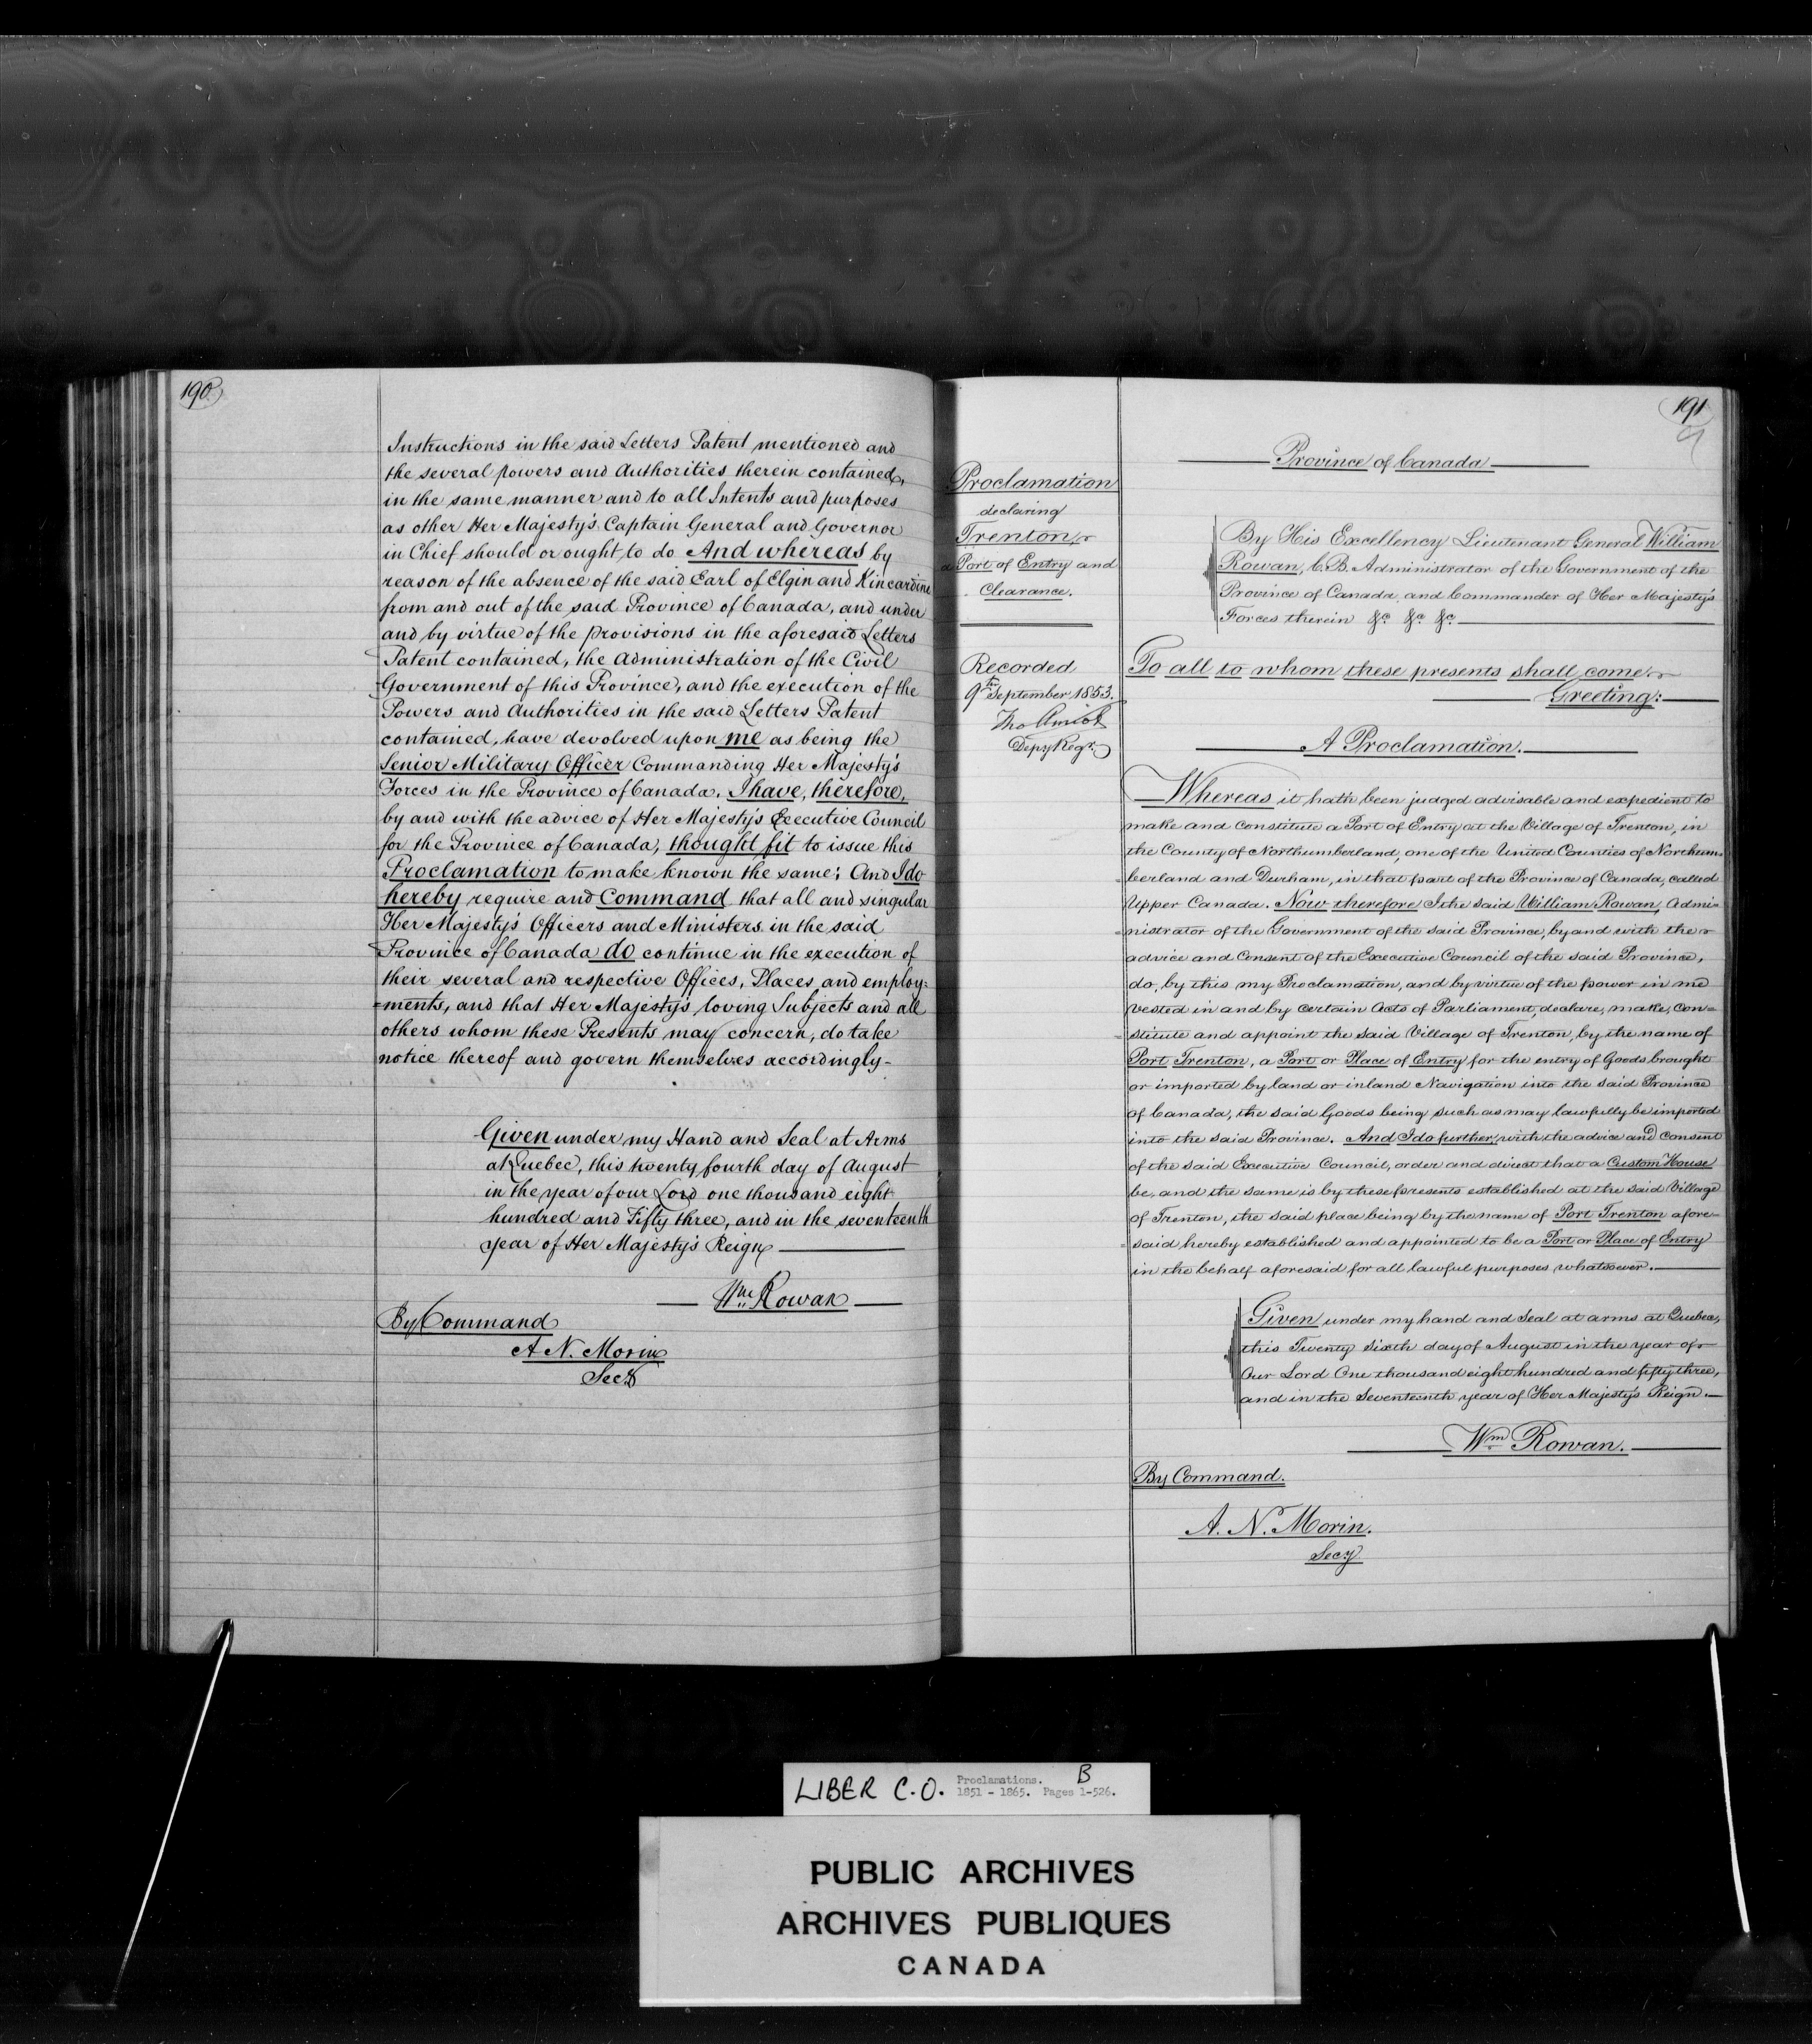 190
Instructions in the said Letters Patent mentioned and
the several powers and Authorities therein contained,
in the same manner and to all Intents and purposes
as other Her Majesty's Captain General and Governor
in Chief should or ought to do And whereas by
reason of the absence of the said Earl of Elgin and Kincardine
from and out of the said Province of Canada, and under
and by virtue of the provisions in the aforesaid Letters
Patent contained, the Administration of the Civil
Government of this Province, and the execution of the
Powers and Authorities in the said Letters Patent
contained, have devolved upon me as being the
Senior Military Officer Commanding Her Majesty's
Forces in the Province of Canada, I have, therefore,
by and with the advice of Her Majesty's Executive Council
for the Province of Canada, thought fit to issue this
Proclamation to make known the same; And I do
hereby require and Command that all and singular
Her Majesty's Officers and Ministers in the said
Province of Canada do continue in the execution of
their several and respective Offices, Places and employ=
=ments, and that Her Majesty's loving Subjects and all
others whom these Presents may concern, do take
notice thereof and govern themselves accordingly-
Given under my Hand and Seal at Arms
at Quebec, this twenty fourth day of August
in the year of our Lord one thousand eight
hundred and Fifty three, and in the seventeenth
year of Her Majesty's Reign
Wm Rowan
By Command
A N. Morin
Secy
191
Proclamation
declaring
Trenton
a Port of Entry and
Clearance.
Recorded
9th September 1853.
Tho Amiot
Depy Regr.
Province of Canada
By His Excellency Lieutenant General William
Rowan, C.B. Administrator of the Government of the
Province of Canada, and Commander of Her Majesty's
Forces therein &c &c &c
To all to whom these presents shall come
Greeting:
A Proclamation.
Whereas it hath been judged advisable and expedient to
make and constitute a Port of Entry at the Village of Trenton, in
the County of Northumberland, one of the United Counties of Northum=
=berland and Durham, in that part of the Province of Canada, called
Upper Canada. Now therefore I the said William Rowan, Admi=
=nistrator of the Government of the said Province, by and with the
advice and Consent of the Executive Council of the said Province,
do, by this my Proclamation, and by virtue of the power in me
vested in and by certain Acts of Parliament, declare, make, con=
=stitute and appoint the said Village of Trenton, by the name of
Port Trenton, a Port or Place of Entry for the entry of Goods brought
or imported by land or inland Navigation into the said Province
of Canada, the said Goods being such as may lawfully be imported
into the said Province. And I do further, with the advice and consent
of the said Executive Council, order and direct that a Custom House
be, and the same is by these presents established at the said Village
of Trenton, the said place being by the name of Port Trenton afore=
=said hereby established and appointed to be a Port or Place of Entry
in the behalf aforesaid for all lawful purposes whatsoever.
Given under my hand and Seal at arms at Quebec,
this Twenty Sixth day of August in the year of
Our Lord One thousand eight hundred and fifty three,
and in the Seventeenth year of Her Majesty's Reign.
Wm Rowan.
By Command.
A. N. Morin.
Secy
LIBER C.O. Proclamations. B
1851 - 1865. Pages 1-526.
PUBLIC ARCHIVES
ARCHIVES PUBLIQUES
CANADA